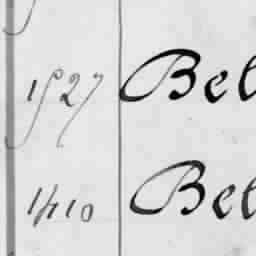 1527 Bel
1410 Bel